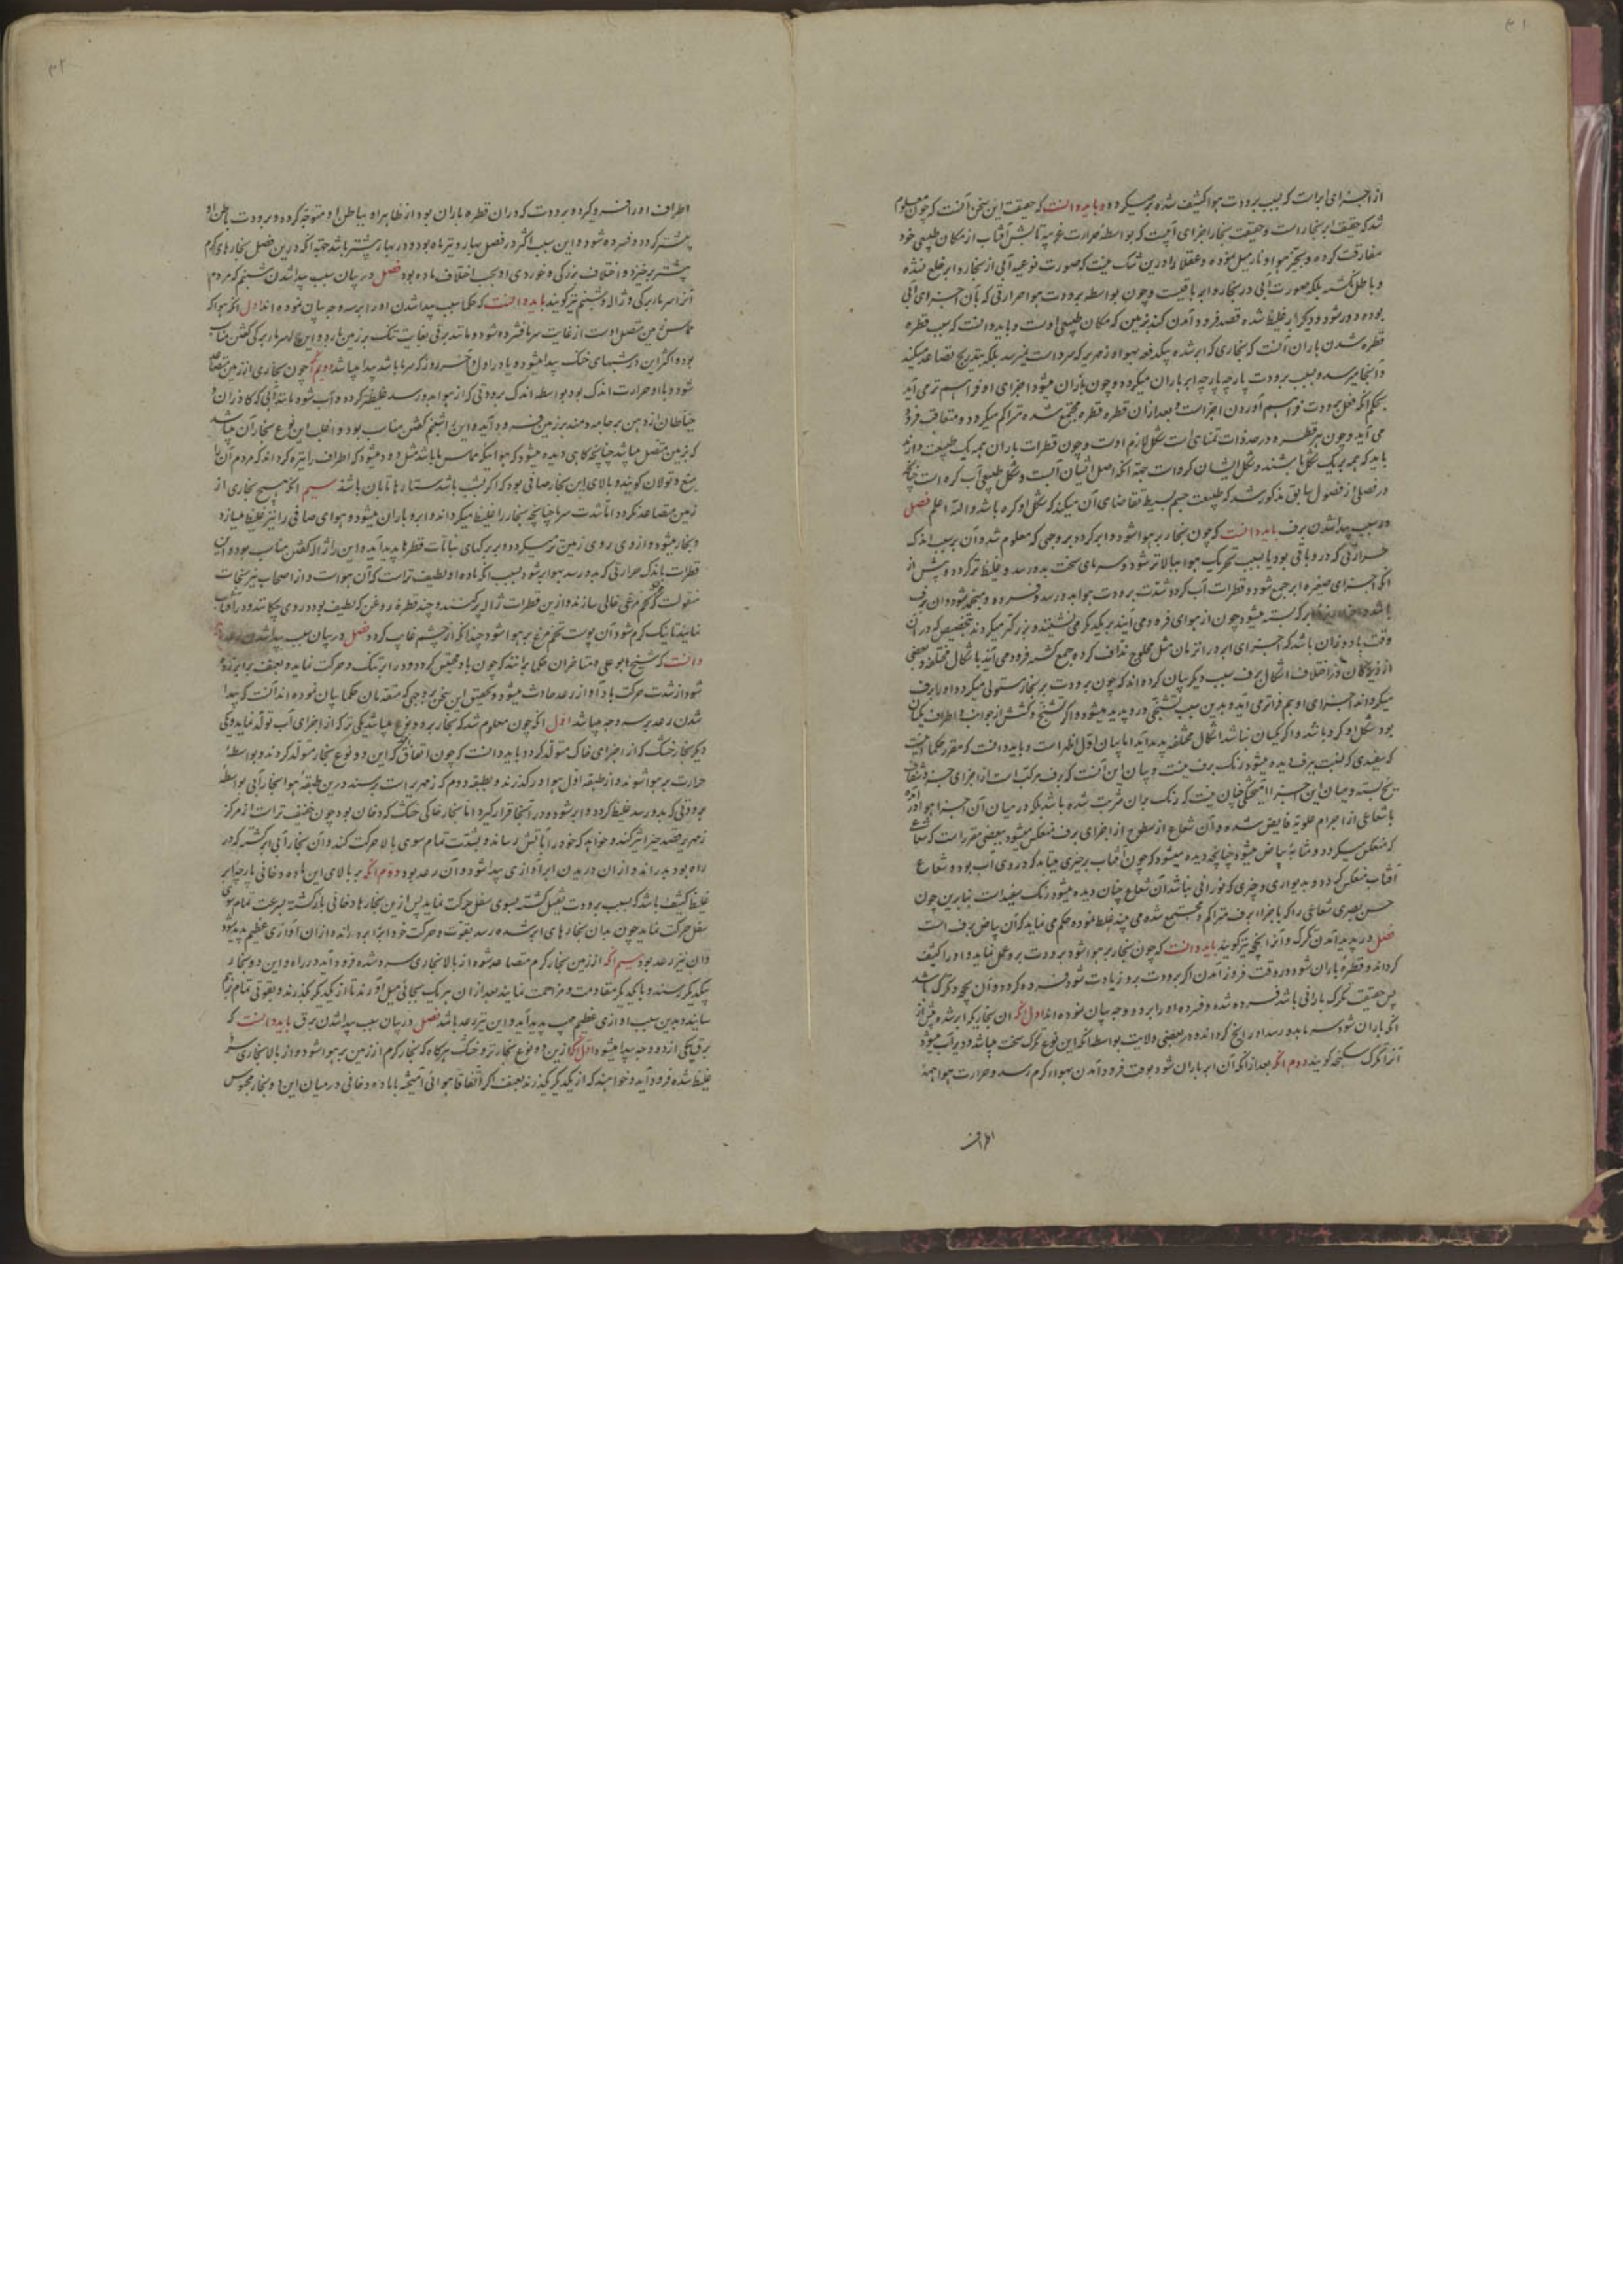 ۳۱
از اجزای ابر است که بسبب برودت هوا کثیف شده بر میگردد و باید دانست که حقیقت این سخن آنست که چون معلوم
شد که حقیقت ابر بخار است و حقیقت بخار اجزای آبیست که بواسطهٔ حرارت غریبه تابش آفتاب از مکان طبیعی خود
مفارقت کرده و بحیز هوا و نار میل نموده و عقلا را درین شک نیست که صورت نوعیه آبی از بخار و ابر خلع نشده
و باطل نگشته بلکه صورت آبی در بخار و ابر باقیست و چون بواسطه برودت هوا حرارتی که بآن جزای آبی
بوده دور شود و دیگر ابر غلیظ شده قصد فرود آمدن کند بزمین که مکان طبیعی اوست و باید دانست که سبب قطره
قطره شدن باران آنست که بخاری که ابر شده بیکدفعه بهوا و زمهریر که سرد است نمیرسد بلکه بتدریج تصاعد میکند
و آنجا میرسد و بسبب برودت پارچه پارچه ابر باران میگردد و چون باران میشود اجزای او فراهم تر می آید
بحکم آنکه فعل برودت فراهم آوردن اجزاست و بعد از آن قطره قطره مجتمع شده متراکم میگردد و متعاقب فرو
می آید و چون هر قطره در حد ذات متناهی است شکل لازم اوست و چون قطرات باران همه یک طبیعت دارند
باید که همه بر یک شکل باشند و شکل ایشان کرواست جهة آنکه اصل ایشان آبست و شکل طبیعی آب کره است چنانچه
در فصلی از فصول سابق مذکور شد که طبیعت جسم بسیط تقاضای آن میکند که شکل او کره باشد والله اعلم فصل
در سبب پیدا شدن برف باید دانست که چون بخار بر هوا شود و ابر گردد بر وجهی که معلوم شد و آن بر سبب اندک
حرارتی که درو باقی بود یا بسبب تحریک هوا بالاتر شود و سرمای سخت بدو رسد و غلیظ تر گردد و پیش از
آنکه اجزای صغیره ابر جمع شود و قطرات آب گردد شدت برودت هوا بدو رسد و فسرده و منجمد شود و آن برف
باشد ابر که بسته میشود چون از هوای فرود می آیند بر یکدیگر می نشینند و بزرگتر میگردند بتخصیص که در آن
وقت باد وزان باشد که اجزای ابر در آن زمان مثل محلوج نداف کرده جمع گشته فرود می آید باشکال مختلفه و بعضی
از در اختلاف اشکال برف سبب دیگر بیان کرده اند که چون برودت بر بخار مستولی میگردد او را برف
میگرداند اجزای او بهم فراتر می آید و بدین سبب تشنجی درو پدید میشود و اگر تشنج و کشش از جوانب و اطراف یکسان
بود شکل او کره باشد و اگر یکسان نباشد اشکال مختلفه پدید آید اما بیان اول اظهر است و باید دانست که مقرر حکما است
که سفیدی که نسبت ببرف دیده میشود رنگ برف نیست و بیان این آنست که برف مرکب است از اجزای جزو شفاف
یخ بسته و میان این اجزا آمیختگی چنان نیست که رنگ بران مترتب شده باشد بلکه در میان آن اجزا هوا درآمده
با شعاعی از اجرام علویه فایض شده و آن شعاع از سطوح از اجزای برف منعکس میشود ببعضی مقرر است که شعاع
که منعکس میگردد و مشابهٔ بیاض میشود چنانچه دیده میشود که چون آفتاب بر چیزی میتابد که در روی آب بوده شعاع
آفتاب منعکس گردد و بدیواری و چیزی که نورانی نباشد آن شعاع چنان دیده میشود رنگ سفید است بنابرین چون
حس بصری شعاعی را که باجزاء برف متراکم و مجتمع شده می بیند غلط نموده حکم می نماید که آن بیاض برف است
فصل در پدید آمدن تگرگ و آنرا یخچه نیز گویند باید دانست که چون بخار بر هوا شود برودت برو عمل نماید و او را کثیف
گرداند و قطرهٔ باران شود در وقت فروز آمدن اگر برودت برو زیادت شود فسرده گردد و آن یخچه و تگرگ باشد
پس حقیقت تگرگ بارانی باشد فسرده شده و فسرده او را بر دو وجه بیان نموده اند اول آنکه آن بخار که ابر شده پیش از
آنکه باران شود سرما بدو رسد او را یخ گرداند و در بعضی ولایت بواسطه آنکه این نوع تگرگ سخت میباشد و دیر آب میشود
آنرا تگرگ سنگچه گویند دوم آنکه بعد از آنکه آن ابر باران شود بوقت فرود آمدن بهواء گرم رسد و حرارت هوا همهٔ
اطراف
۳۲
اطراف او را فرو گیرد و برودت که در آن قطره باران بود از ظاهر او بباطن او متوجه گردد و برودت باطن او
بیشتر گردد و فسرده شود و این سبب اکثر در فصل بهار و تیرماه بود و در بهار بیشتر باشد جهة آنکه درین فصل بخارهای گرم
بیشتر برخیزد و اختلاف بزرگی و خوردی او بحسب اختلاف ماده بود فصل در بیان سبب پیدا شدن شبنم که مردم
آنرا سرماریزگی و ژاله و شبنم نیز گویند باید دانست که حکما سبب پیدا شدن او را بر سه وجه بیان نموده اند اول آنکه هوا که
مماس زمین متصل اوست از غایت سرما فسرده شود و مانند برفی بغایت تنک بر زمین بارد و این را سرماریزگی گفتن مناسب
بود و اکثر این در شبهای خنک پیدا میشود و یا در اول و آخر روز که سرما باشد پیدا میباشد دویم آنکه چون بخاری از زمین متصاعد
شود و با او حرارت اندک بود بواسطه اندک برودتی که از هوا بدو رسد غلیظ تر گردد و آب شود مانند آبی که گازران و
خیاطان از دهن بر جامه دمند بر زمین فرود آید و این را شبنم گفتن مناسب بود و اغلب این نوع بخار آن میباشد
که بزمین متصل میباشد چنانچه گاهی دیده میشود که هوا اینکه مماس ما باشد مثل دود میشود که اطراف را تیره گرداند که مردم آن را
میغ و تولان گویند و بالای این بخار صافی بود که اگر شب باشد ستارها تابان باشد سیم آنکه هیچ بخاری از
زمین متصاعد نگردد اما شدت سرما چنانچه بخار را غلیظ میگرداند و ابر و باران میشود و هوای صافی را نیز غلیظ میسازد
و بخار میشود و از وی روی زمین تر میگردد و بر برگهای نباتات قطرها پدید آید و این را ژاله گفتن مناسب بود و این
قطرات باندک حرارتی که بدو رسد بهوا بر شود بسبب آنکه ماده او لطیف تر است که آن هواست و از اصحاب نیرنجات
منقولست که تخم مرغی خالی سازند و ازین قطرات ژاله پر کنند و چند قطرهٔ روغن که لطیف بود در وی چکانند و در آفتاب
نهند تا نیک گرم شود آن پوست تخم مرغ بر هوا شود چندانکه از چشم غایب گردد فصل در بیان سبب پیدا شدن رعد باید
دانست که شیخ ابو علی و متاخران حکما برانند که چون باد محتبس گردد در ابر تنک و حرکت نماید و بعنف برابر زده
شود از شدت حرکت باد آواز رعد حادث میشود و تحقیق این سخن بر وجهی که متقدمان حکما بیان نموده اند آنست که پیدا
شدن رعد بر سه وجه میباشد اول آنکه چون معلوم شد که بخار بر دو نوع میباشد یکی تر که از اجزای آب تولد نماید و یکی
دیگر بخار خشک که از اجزای خاک متولد گردد باید دانست که چون اتفاق که این دو نوع بخار متولد گردند و بواسطهٔ
حرارت بر هوا شوند و از طبقه اول هوا در گذرند و بطبقه دوم که زمهریر است برسند درین طبقهٔ هوا بخار آبی بواسطهٔ
برودتی که بدو رسد غلیظ گردد و ابر شود و در آنجا قرار گیرد اما بخار خاکی خشک که دخان بود چون خفیف تر است از مرکز
زمهریر قصد حیز اثیر کند و خواهد که خود را بآتش رساند و بشدت تمام سوی بالا حرکت کند و آن بخار آبی ابر گشته که در
راه بود بدراند و از آن دریدن ابر آوازی پیدا شود و آن رعد بود دوم آنکه بر بالای این ماده دخانی پارچه ابر
غلیظ کثیف باشد که بسبب برودت ثقیل گشته بسوی سفل حرکت نماید پس ازین بخارها دخانی بازگشته بسرعت تمام بسوی
سفل حرکت نماید چون بدان بخارهای ابر شده رسد بقوت و حرکت خود ابر را بدراند و از آن آوازی عظیم پدید شود
و آن نیز رعد بود سیم آنکه از زمین بخار گرم متصاعد شود و از بالا بخاری سرد شده فرود آید و در راه و این دو بخار
بیکدیگر رسند و با یکدیگر مقاومت و مزاحمت نمایند بعد از آن هر یک بجائی میل آورند تا از یکدیگر گذرند و بقوتی تمام بهم
سایند و بدین سبب آوازی عظیم مهیب پدید آید و این نیز رعد باشد فصل در بیان سبب پیدا شدن برق باید دانست که
برق یکی از دو وجه پیدا میشود اول آنکه ازین دو نوع بخار تر و خشک هر گاه که بخار گرم از زمین بر هوا شود و از بالا بخاری سرد
غلیظ شده فرود آید و خواهند که از یکدیگر گذرند بعنف اگر اتفاقا هوائی آمیخته با ماده دخانی در میان این دو بخار محبوس